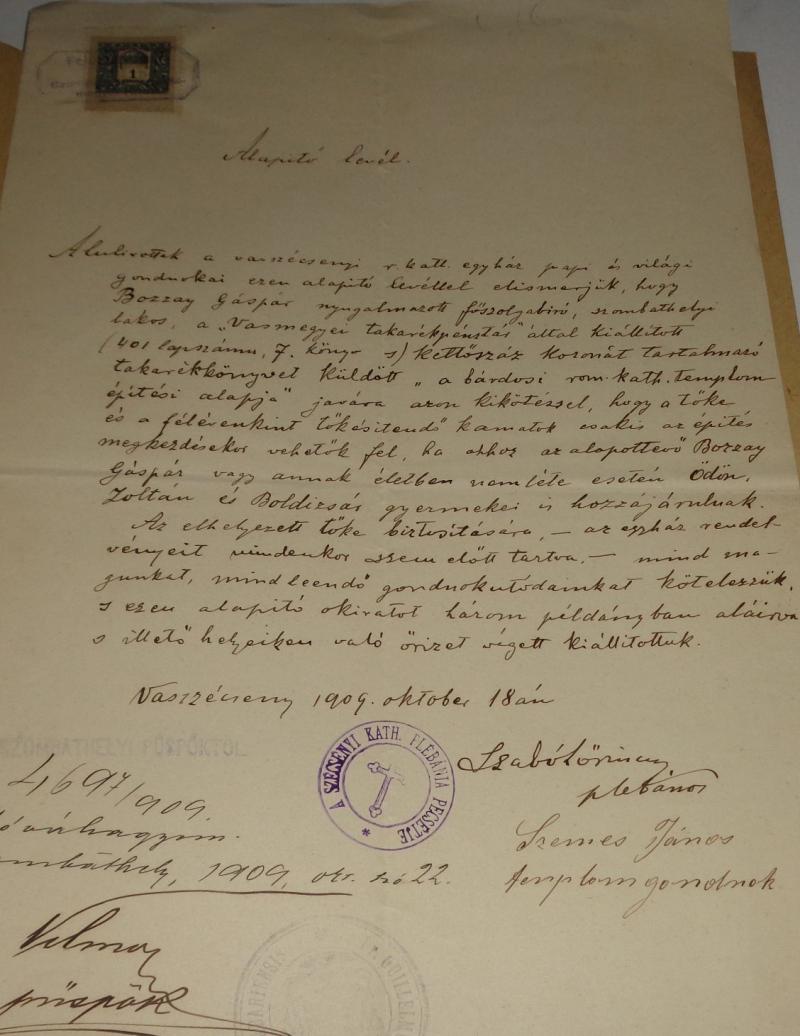 1
Alapító levél.
Alulirottak a vasszécsenyi r. kath. egyház papi és világi
gondnokai ezen alapító levéllel elismerjük, hogy
Bozzay Gáspár nyugalmazott főszolgabiró, szombathelyi
lakos, a „Vasmegyei takarékpénztár" által kiállitott
(401 lapszámu, 7. könyv s) Kettőszáz koronát tartalmazó
takarékkönyvet küldött „a bárdosi rom. kath. templom
építési alapja" javára azon kikötéssel, hogy a tőke
és a félévenkint tőkésitendő kamatok csakis az épités
megkezdésekor vehetők fel, ha ahhoz az alapottevő Bozzay
Gáspár vagy annak életben nemléte esetén Ödön,
Zoltán és Boldizsár gyermekei is hozzájárulnak.
Az elhelyezett tőke biztositására, – az egyház rendel-
vényeit mindenkor szem előtt tartva, – mind ma-
gunkat, mind leendő gondnokutódainkat kötelezzük,
s ezen alapitó okiratot három példányban aláirva
s illető helyeiken való őrizet végett kiállitottuk.
Vasszécseny 1909. oktober 18án
SZOMBATHELYI PÜSPÖKTŐL
4697/909.
A SZECSENYI KATH. PLÉBÁNIA PECSÉTJE
Szabó Lőrincz
plébános
Szemes János
templomgondnok
Jóváhagyom.
Szombathely, 1909, okt. hó 22.
Vilmos
püspök